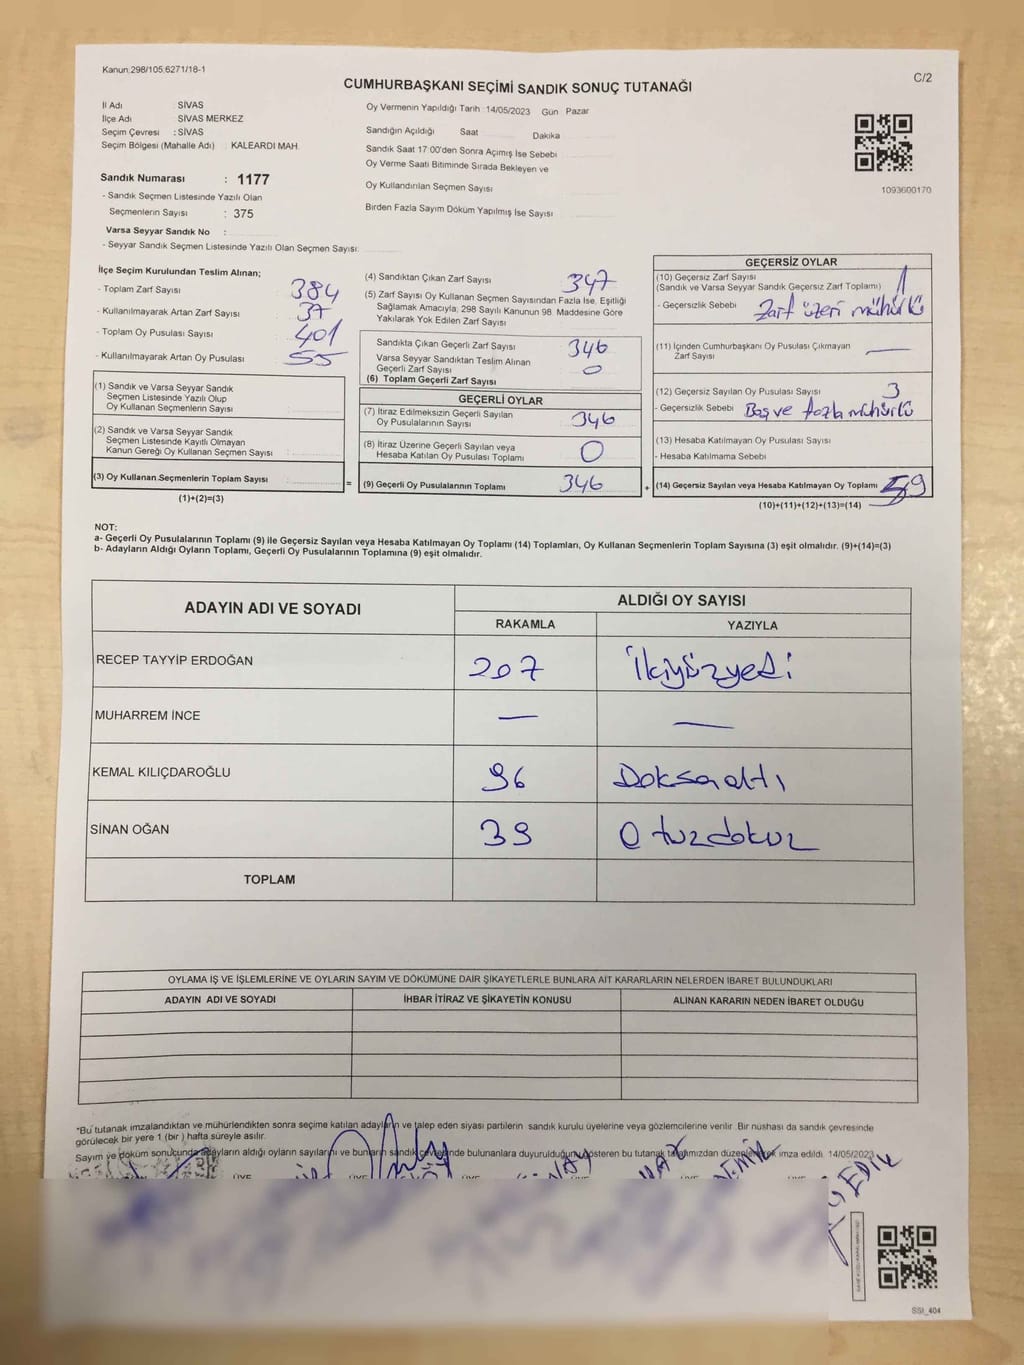 Kanun:298/105;6271/18-1
C/2
CUMHURBAŞKANI SEÇİMİ SANDIK SONUÇ TUTANAĞI
İl Adı : SİVAS
İlçe Adı : SİVAS MERKEZ
Seçim Çevresi : SİVAS
Seçim Bölgesi (Mahalle Adı) : KALEARDI MAH.
Sandık Numarası : 1177
- Sandık Seçmen Listesinde Yazılı Olan
Seçmenlerin Sayısı : 375
Varsa Seyyar Sandık No :
- Seyyar Sandık Seçmen Listesinde Yazılı Olan Seçmen Sayısı:
Oy Vermenin Yapıldığı Tarih :14/05/2023 Gün Pazar
Sandığın Açıldığı Saat Dakika
Sandık Saat 17:00'den Sonra Açımış İse Sebebi
Oy Verme Saati Bitiminde Sırada Bekleyen ve
Oy Kullandırılan Seçmen Sayısı
Birden Fazla Sayım Döküm Yapılmış İse Sayısı
1093600170
İlçe Seçim Kurulundan Teslim Alınan;
- Toplam Zarf Sayısı 384
- Kullanılmayarak Artan Zarf Sayısı 37
- Toplam Oy Pusulası Sayısı 401
- Kullanılmayarak Artan Oy Pusulası 55
(1) Sandık ve Varsa Seyyar Sandık
Seçmen Listesinde Yazılı Olup
Oy Kullanan Seçmenlerin Sayısı
(2) Sandık ve Varsa Seyyar Sandık
Seçmen Listesinde Kayıtlı Olmayan
Kanun Gereği Oy Kullanan Seçmen Sayısı
(3) Oy Kullanan Seçmenlerin Toplam Sayısı =
(1)+(2)=(3)
(4) Sandıktan Çıkan Zarf Sayısı 347
(5) Zarf Sayısı Oy Kullanan Seçmen Sayısından Fazla İse, Eşitliği
Sağlamak Amacıyla; 298 Sayılı Kanunun 98. Maddesine Göre
Yakılarak Yok Edilen Zarf Sayısı
Sandıkta Çıkan Geçerli Zarf Sayısı 346
Varsa Seyyar Sandıktan Teslim Alınan
Geçerli Zarf Sayısı 0
(6) Toplam Geçerli Zarf Sayısı
GEÇERLİ OYLAR
(7) İtiraz Edilmeksizin Geçerli Sayılan
Oy Pusulalarının Sayısı 346
(8) İtiraz Üzerine Geçerli Sayılan veya
Hesaba Katılan Oy Pusulası Toplamı 0
(9) Geçerli Oy Pusulalarının Toplamı 346 +
GEÇERSİZ OYLAR
(10) Geçersiz Zarf Sayısı
(Sandık ve Varsa Seyyar Sandık Geçersiz Zarf Toplamı) 1
- Geçersizlik Sebebi Zarf üzeri mühürlü
(11) İçinden Cumhurbaşkanı Oy Pusulası Çıkmayan
Zarf Sayısı —
(12) Geçersiz Sayılan Oy Pusulası Sayısı 3
- Geçersizlik Sebebi Boş ve fazla mühürlü
(13) Hesaba Katılmayan Oy Pusulası Sayısı
- Hesaba Katılmama Sebebi
(14) Geçersiz Sayılan veya Hesaba Katılmayan Oy Toplamı
(10)+(11)+(12)+(13)=(14)
NOT:
a- Geçerli Oy Pusulalarının Toplamı (9) ile Geçersiz Sayılan veya Hesaba Katılmayan Oy Toplamı (14) Toplamları, Oy Kullanan Seçmenlerin Toplam Sayısına (3) eşit olmalıdır. (9)+(14)=(3)
b- Adayların Aldığı Oyların Toplamı, Geçerli Oy Pusulalarının Toplamına (9) eşit olmalıdır.
ADAYIN ADI VE SOYADI ALDIĞI OY SAYISI
RAKAMLA YAZIYLA
RECEP TAYYİP ERDOĞAN 207 İkiyüzyedi
MUHARREM İNCE — —
KEMAL KILIÇDAROĞLU 96 Doksanaltı
SİNAN OĞAN 39 Otuzdokuz
TOPLAM
OYLAMA İŞ VE İŞLEMLERİNE VE OYLARIN SAYIM VE DÖKÜMÜNE DAİR ŞİKAYETLERLE BUNLARA AİT KARARLARIN NELERDEN İBARET BULUNDUKLARI
ADAYIN ADI VE SOYADI İHBAR İTİRAZ VE ŞİKAYETİN KONUSU ALINAN KARARIN NEDEN İBARET OLDUĞU
*Bu tutanak imzalandıktan ve mühürlendikten sonra seçime katılan adayların ve talep eden siyasi partilerin sandık kurulu üyelerine veya gözlemcilerine verilir. Bir nüshası da sandık çevresinde
görülecek bir yere 1 (bir ) hafta süreyle asılır.
Sayım ve döküm sonucunda adayların aldığı oyların sayılarını ve bunların sandık çevresinde bulunanlara duyurulduğunu gösteren bu tutanak tarafımızdan düzenlenerek imza edildi. 14/05/2023
SSI_404